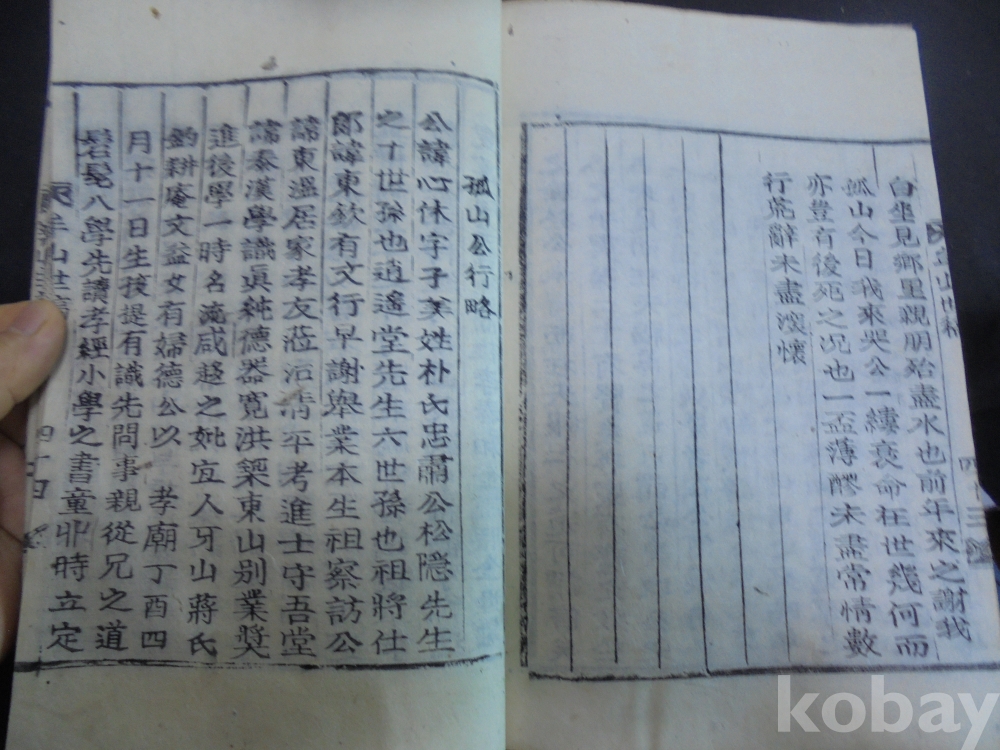 白坐見鄉里親朋殆盡水也前年來之謝我
孤山今日我來哭公一縷衰命在世幾何而
亦豈有後死之况也一盃薄醪未盡常情數
行荒辭未盡深懷
山世稿
四十三
孤山公行略
公諱心休字子美姓朴氏忠肅公松隱先生
之十世孫也逍遙堂先生六世孫也祖將仕
郎諱東欽有文行早謝舉業本生祖察訪公
諱東溫居家孝友莅沿清平考進士守吾堂
諱泰漢學識眞純德器寬洪築東山別業奬
進後學一時名流咸趍之妣宜人牙山蔣氏
釣耕庵文益女有婦德公以 孝廟丁酉四
月十一日生孩提有識先問事親從兄之道
髫髦八學先讀孝經小學之書童丱時立定
山世稿
四十四
kobay